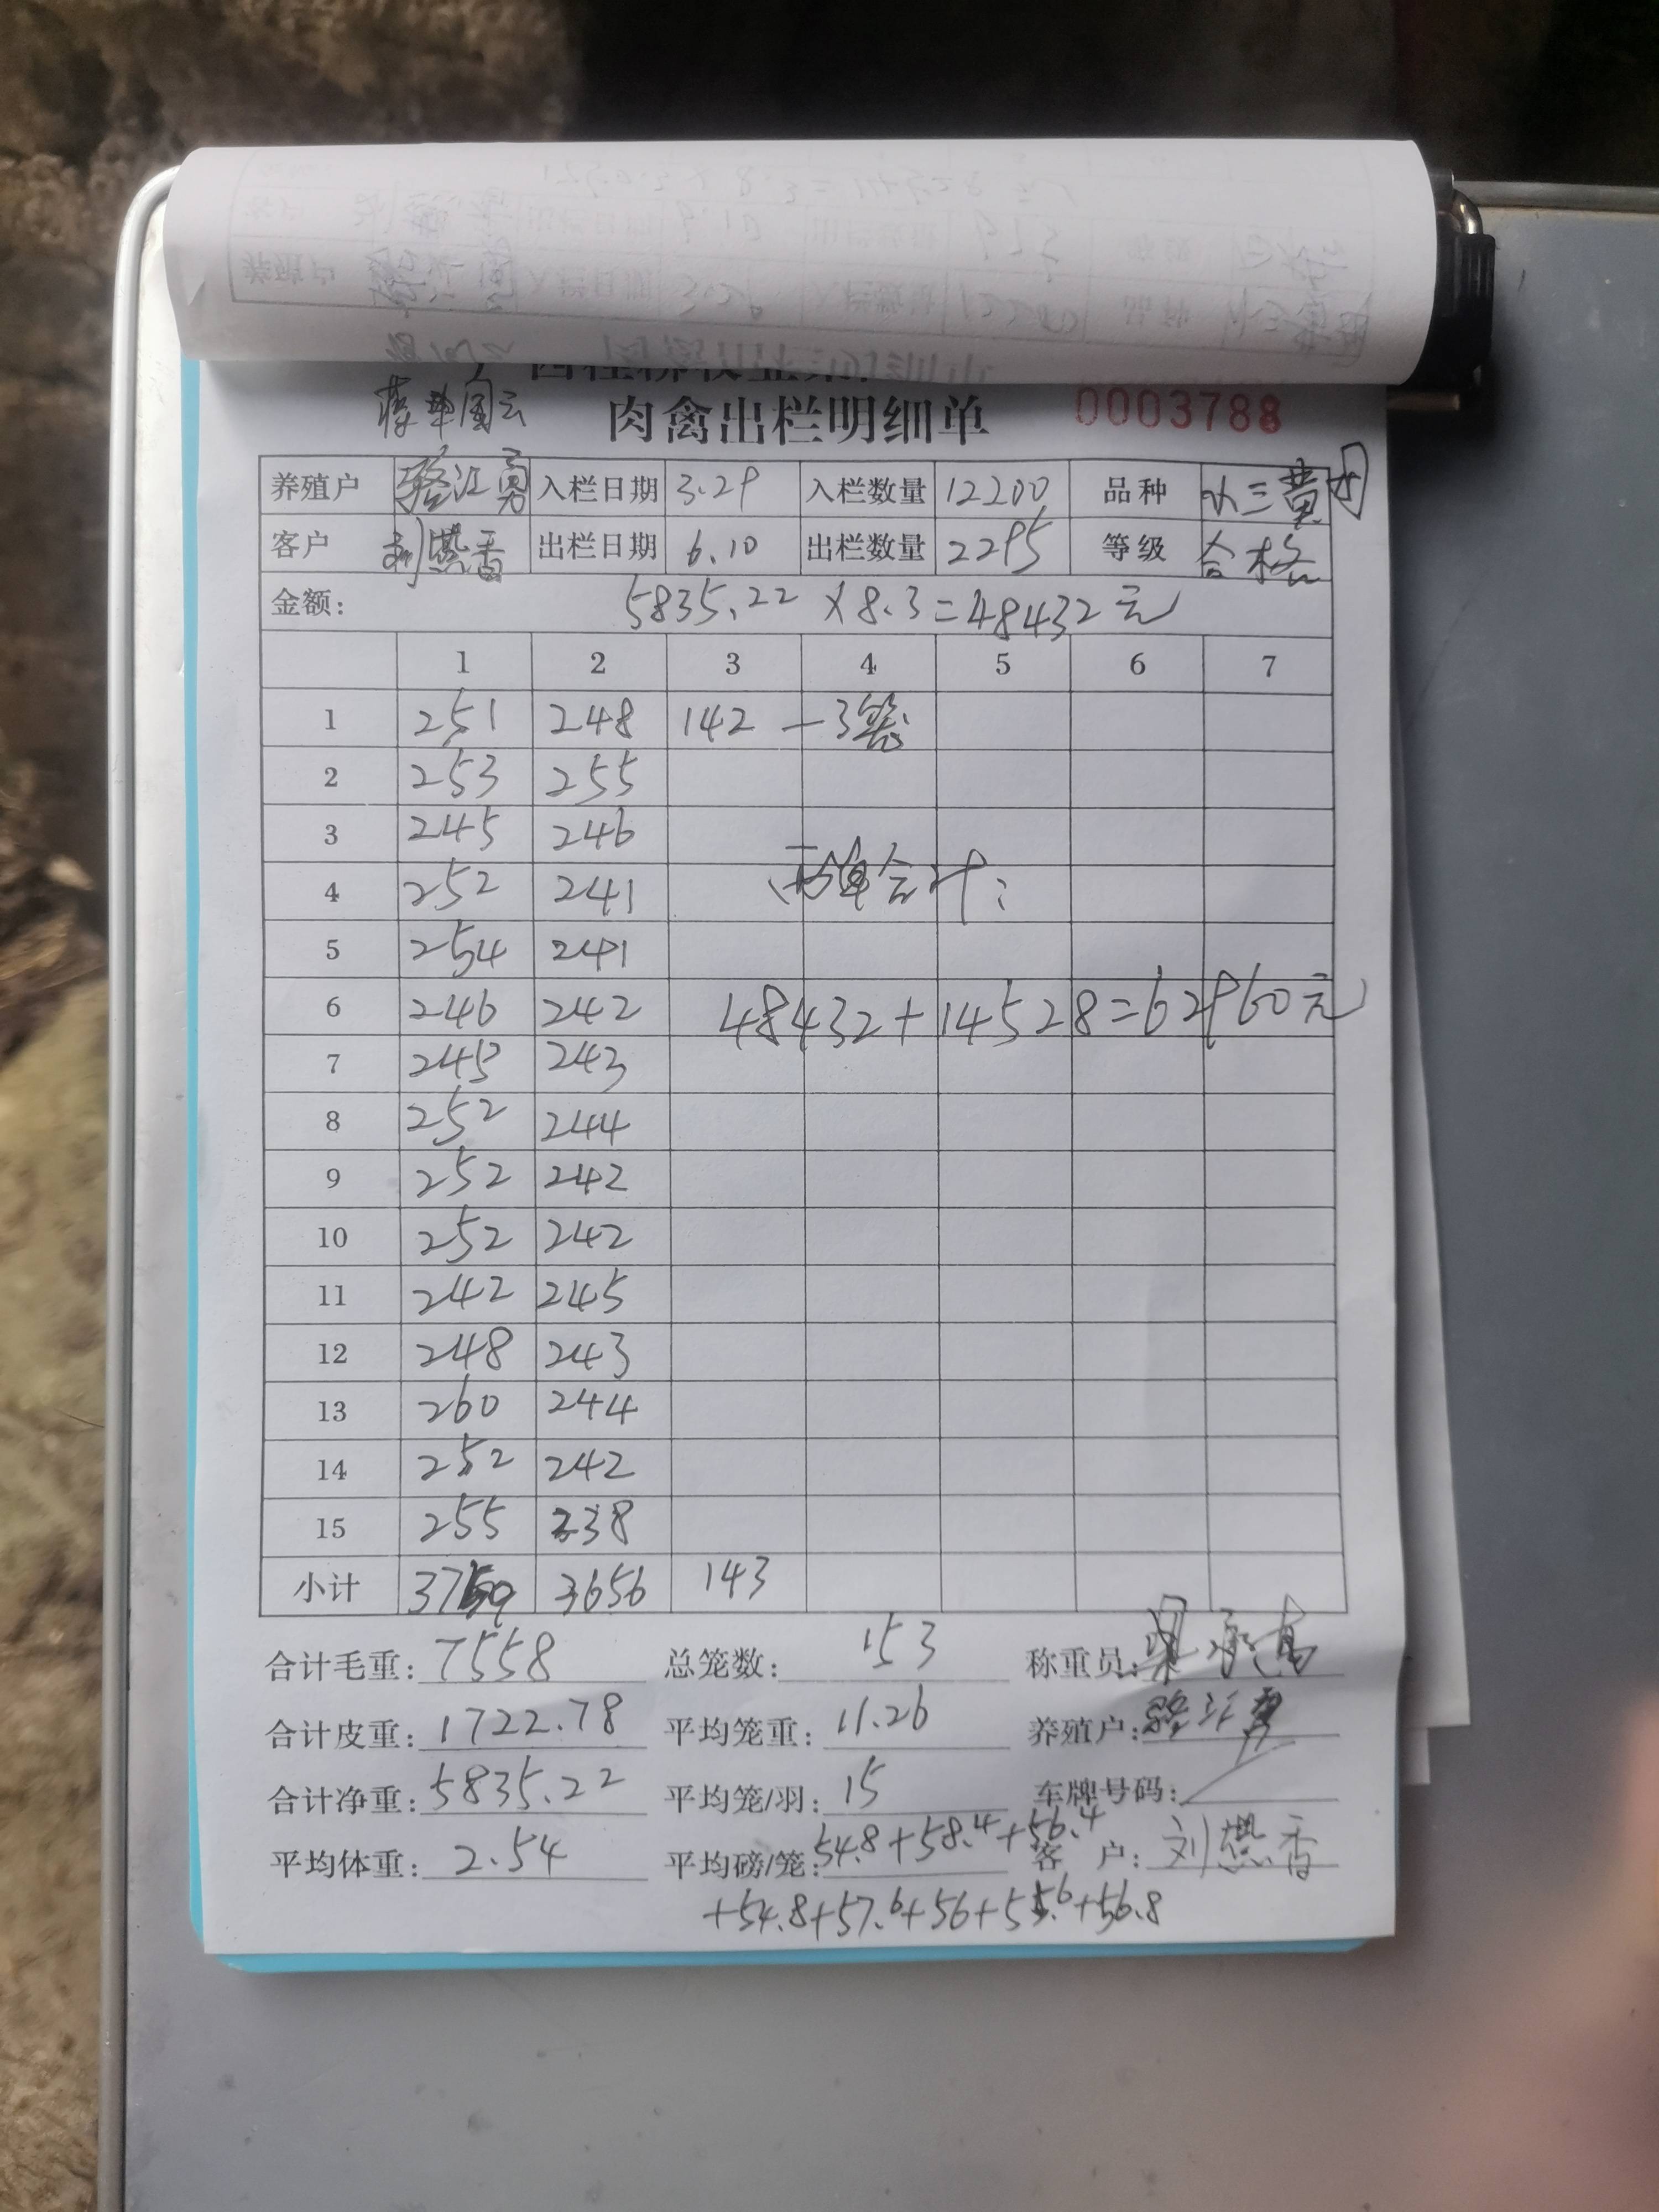 肉禽出栏明细单 0003788
养殖户 骆江勇 入栏日期 3.29 入栏数量 12200 品种 小三黄母
客户 刘燕香 出栏日期 6.10 出栏数量 2295 等级 合格
金额: 5835.22 × 8.3 = 48432元
1 2 3 4 5 6 7
1 251 248 142 — 3笼
2 253 255
3 245 246
4 252 241
两单合计:
5 254 241
6 246 242 48432+14528=62960元
7 245 243
8 252 244
9 252 242
10 252 242
11 242 245
12 248 243
13 260 244
14 252 242
15 255 238
小计 3759 3656 143
合计毛重: 7558 总笼数: 153 称重员:
合计皮重: 1722.78 平均笼重: 11.26 养殖户: 骆江勇
合计净重: 5835.22 平均笼/羽: 15 车牌号码:
平均体重: 2.54 平均磅/笼: 54.8+58.4+56.4 客户: 刘燕香
+54.8+57.6+56+55.6+56.8